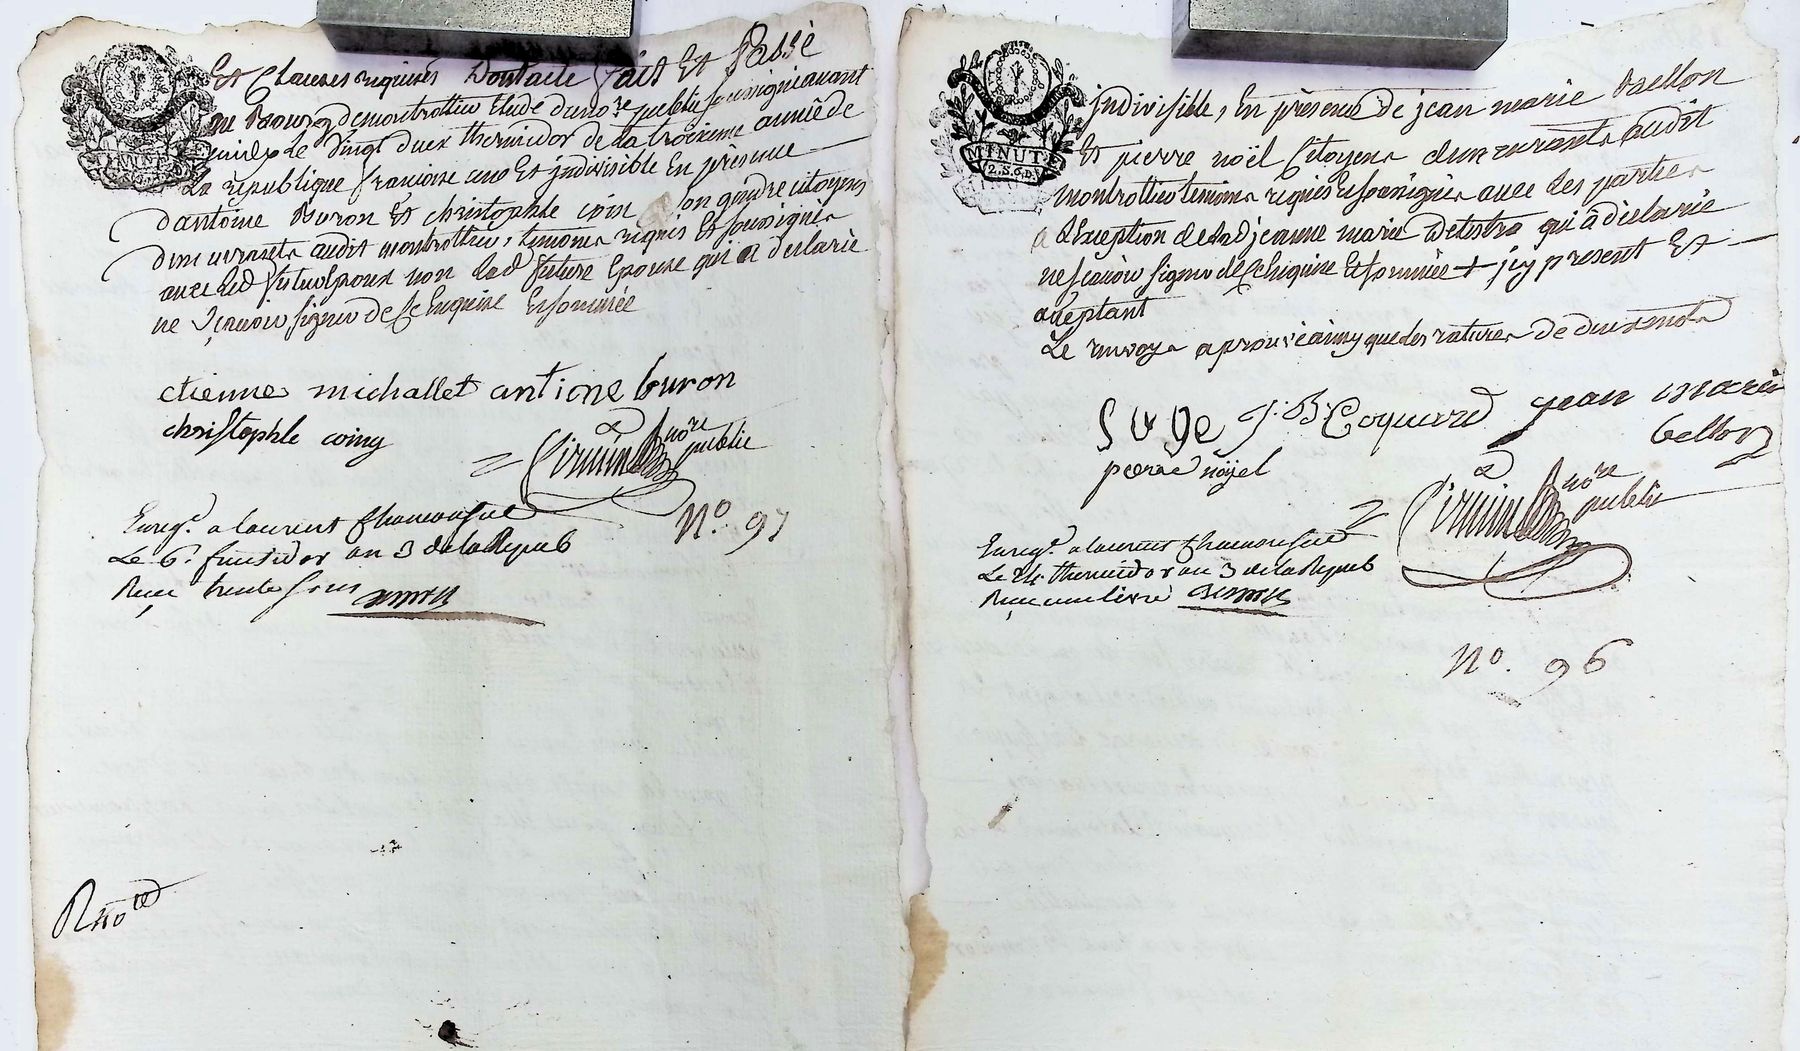 Et Clauses requises Dont acte fait Et passé
au Bourg de montrottier Etude du no.re public soussigné avant
midy Le vingt deux thermidor de La troisieme année de
La republique francoise une Et indivisible En presence
d'antoine Buron Et christophle coin son gendre citoyens
demeurants audit montrottier, temoins requis Et soussignés
avec led futur Epoux non lad future Epouse qui a declarée
ne sçavoir signer de ce Enquise Et sommée
etienne michallet antione buron
christophle coiny
no.re public
N.o 97
Enreg.é a laurent Chamousset
Le 6. fructidor an 3 de la Repub
Reçu trente sous
MINUTE
indivisible, En presence de jean marie Bellon
Et pierre noël Citoyens demeurants audit
montrottier temoins requis Et soussignés avec les parties
a L'Exception de lad jeanne marie qui a declarée
ne sçavoir signer de ce Enquise Et sommée + icy present Et
aceptant
Le renvoy aprouvé ainsy que des ratures de deux mots
J. B. Coquard jean marie
bellon
pierre nöyel
MINUTE
2. S. 6. D.
no.re public
Enreg.é a laurent Chamousset
Le 24 thermidor an 3 de la Repub
Reçu une livre
N.o 96